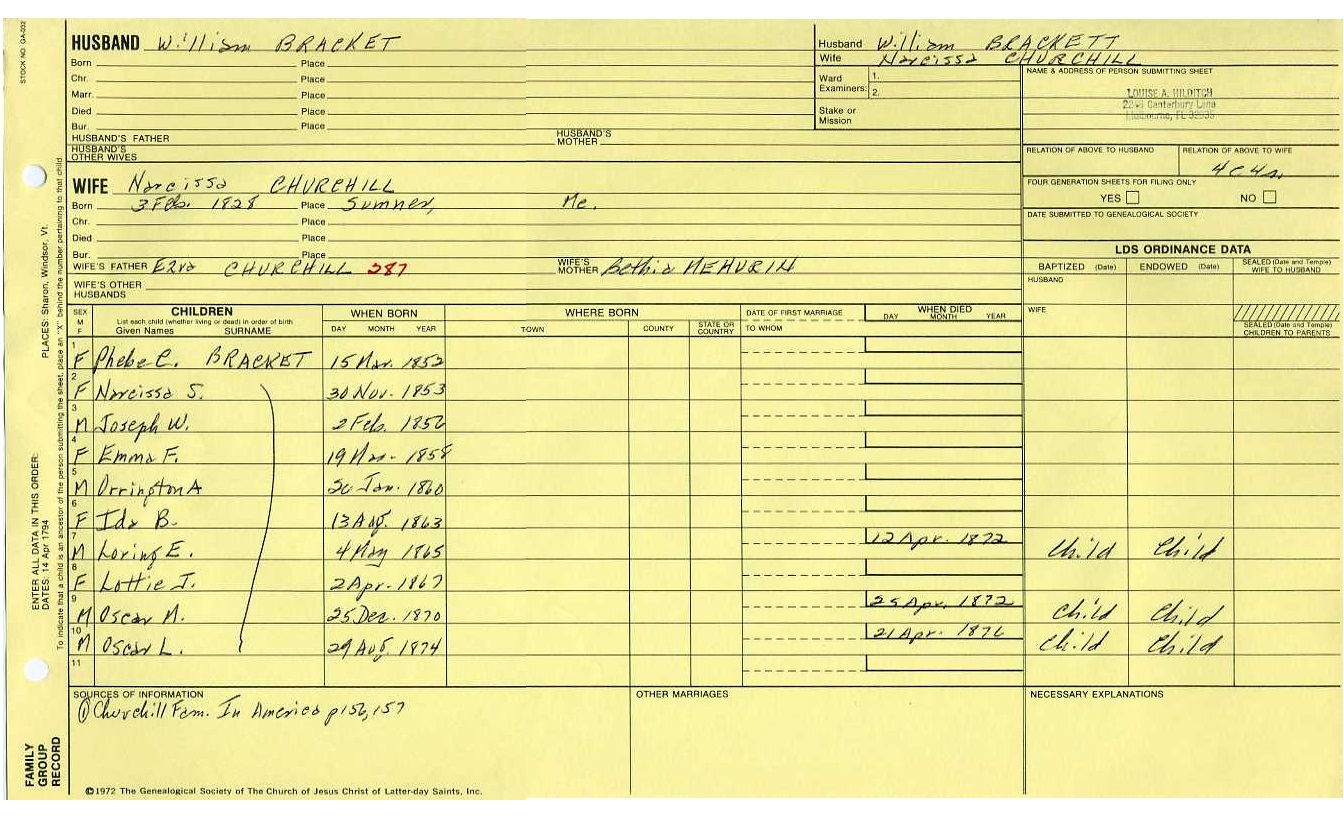 STOCK NO. GA-032
HUSBAND William BRACKET
Born Place
Chr. Place
Marr. Place
Died Place
Bur. Place
HUSBAND'S FATHER HUSBAND'S MOTHER
HUSBAND'S OTHER WIVES
Husband William BRACKETT
Wife Narcissa CHURCHILL
Ward Examiners: 1.
2.
Stake or Mission
NAME & ADDRESS OF PERSON SUBMITTING SHEET
LOUISE A. HILDITCH
Canterbury Lane
Melbourne, FL 32935
RELATION OF ABOVE TO HUSBAND RELATION OF ABOVE TO WIFE
FOUR GENERATION SHEETS FOR FILING ONLY
YES NO
DATE SUBMITTED TO GENEALOGICAL SOCIETY
WIFE Narcissa CHURCHILL
Born 3 Feb. 1828 Place Sumner, Me.
Chr. Place
Died Place
Bur. Place
WIFE'S FATHER Ezra CHURCHILL 287 WIFE'S MOTHER Bethia MEHURIN
WIFE'S OTHER HUSBANDS
LDS ORDINANCE DATA
BAPTIZED (Date) ENDOWED (Date) SEALED (Date and Temple) WIFE TO HUSBAND
HUSBAND
WIFE
SEALED (Date and Temple) CHILDREN TO PARENTS
SEX M F CHILDREN WHEN BORN WHERE BORN DATE OF FIRST MARRIAGE WHEN DIED
List each child (whether living or dead) in order of birth
Given Names SURNAME DAY MONTH YEAR TOWN COUNTY STATE OR COUNTRY TO WHOM DAY MONTH YEAR
1 F Phebe C. BRACKET 15 Mar. 1852
2 F Narcissa S. 30 Nov. 1853
3 M Joseph W. 2 Feb. 1856
4 F Emma F. 19 Mar. 1858
5 M Orrington A 26 Jan. 1860
6 F Ida B. 13 Aug. 1863
7 M Loring E. 4 May 1865 12 Apr. 1872 Child Child
8 F Lottie J. 2 Apr. 1867
9 M Oscar M. 25 Dec. 1870 25 Apr. 1872 Child Child
10 M Oscar L. 29 Aug. 1874 21 Apr. 1876 Child Child
11
SOURCES OF INFORMATION OTHER MARRIAGES NECESSARY EXPLANATIONS
① Churchill Fam. In America p156, 157
©1972 The Genealogical Society of The Church of Jesus Christ of Latter-day Saints, Inc.
FAMILY GROUP RECORD
ENTER ALL DATA IN THIS ORDER:
DATES: 14 Apr 1794 PLACES: Sharon, Windsor, Vt.
To indicate that a child is an ancestor of the person submitting the sheet, place an "X" behind the number pertaining to that child.